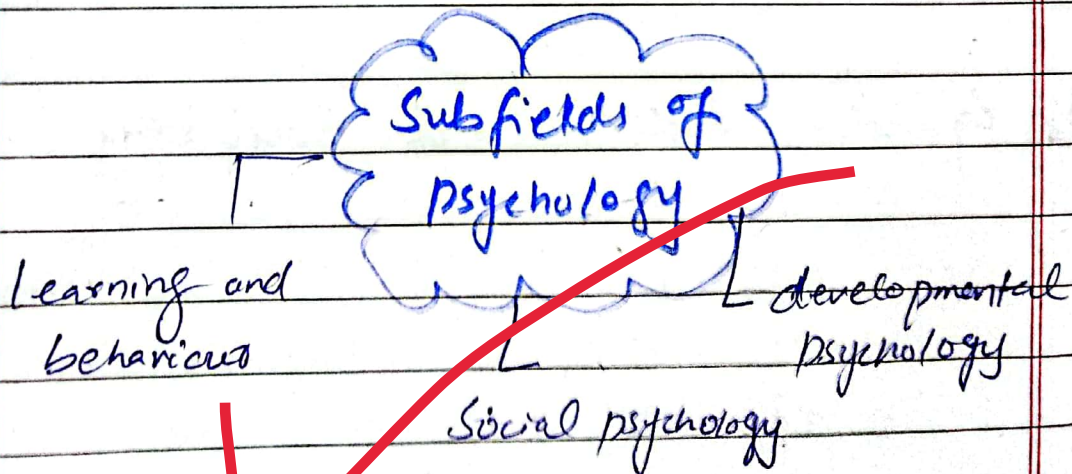 Subfields of
psychology
Learning and
behaviour
developmental
psychology
Social psychology